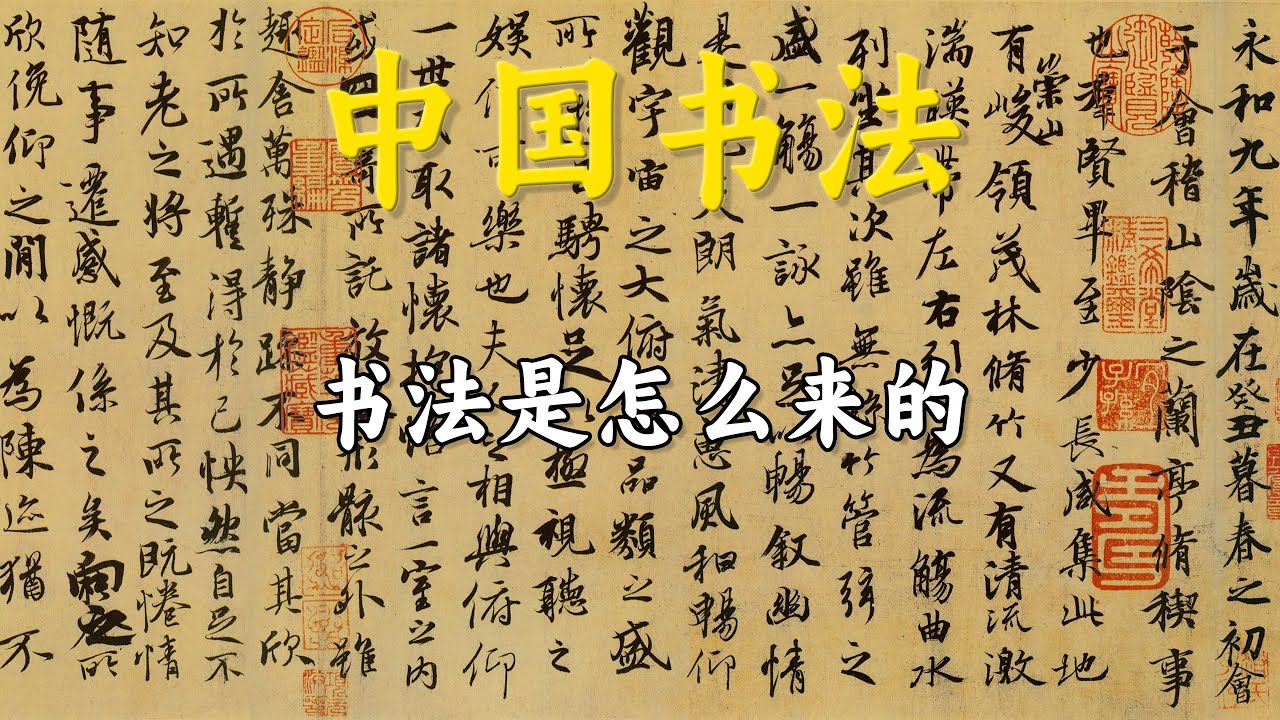 中国书法
书法是怎么来的
永和九年歲在癸丑暮春之初會
于會稽山陰之蘭亭脩稧事
也羣賢畢至少長咸集此地
有崇山峻領茂林脩竹又有清流激
湍暎帶左右引為流觴曲水
列坐其次雖無竹管弦之
盛一觴一詠亦足暢敘幽情
是天朗氣清惠風和暢仰
觀宇宙之大俯品類之盛
所騁懷足極視聽之
娛信可樂也夫之相與俯仰
一世取諸懷言一室之內
或所託放形骸之外雖
趣舍萬殊靜躁不同當其欣
於所遇暫得於己怏然自足不
知老之將至及其所之既惓情
隨事遷感慨係之矣向之所
欣俛仰之閒以為陳迹猶不